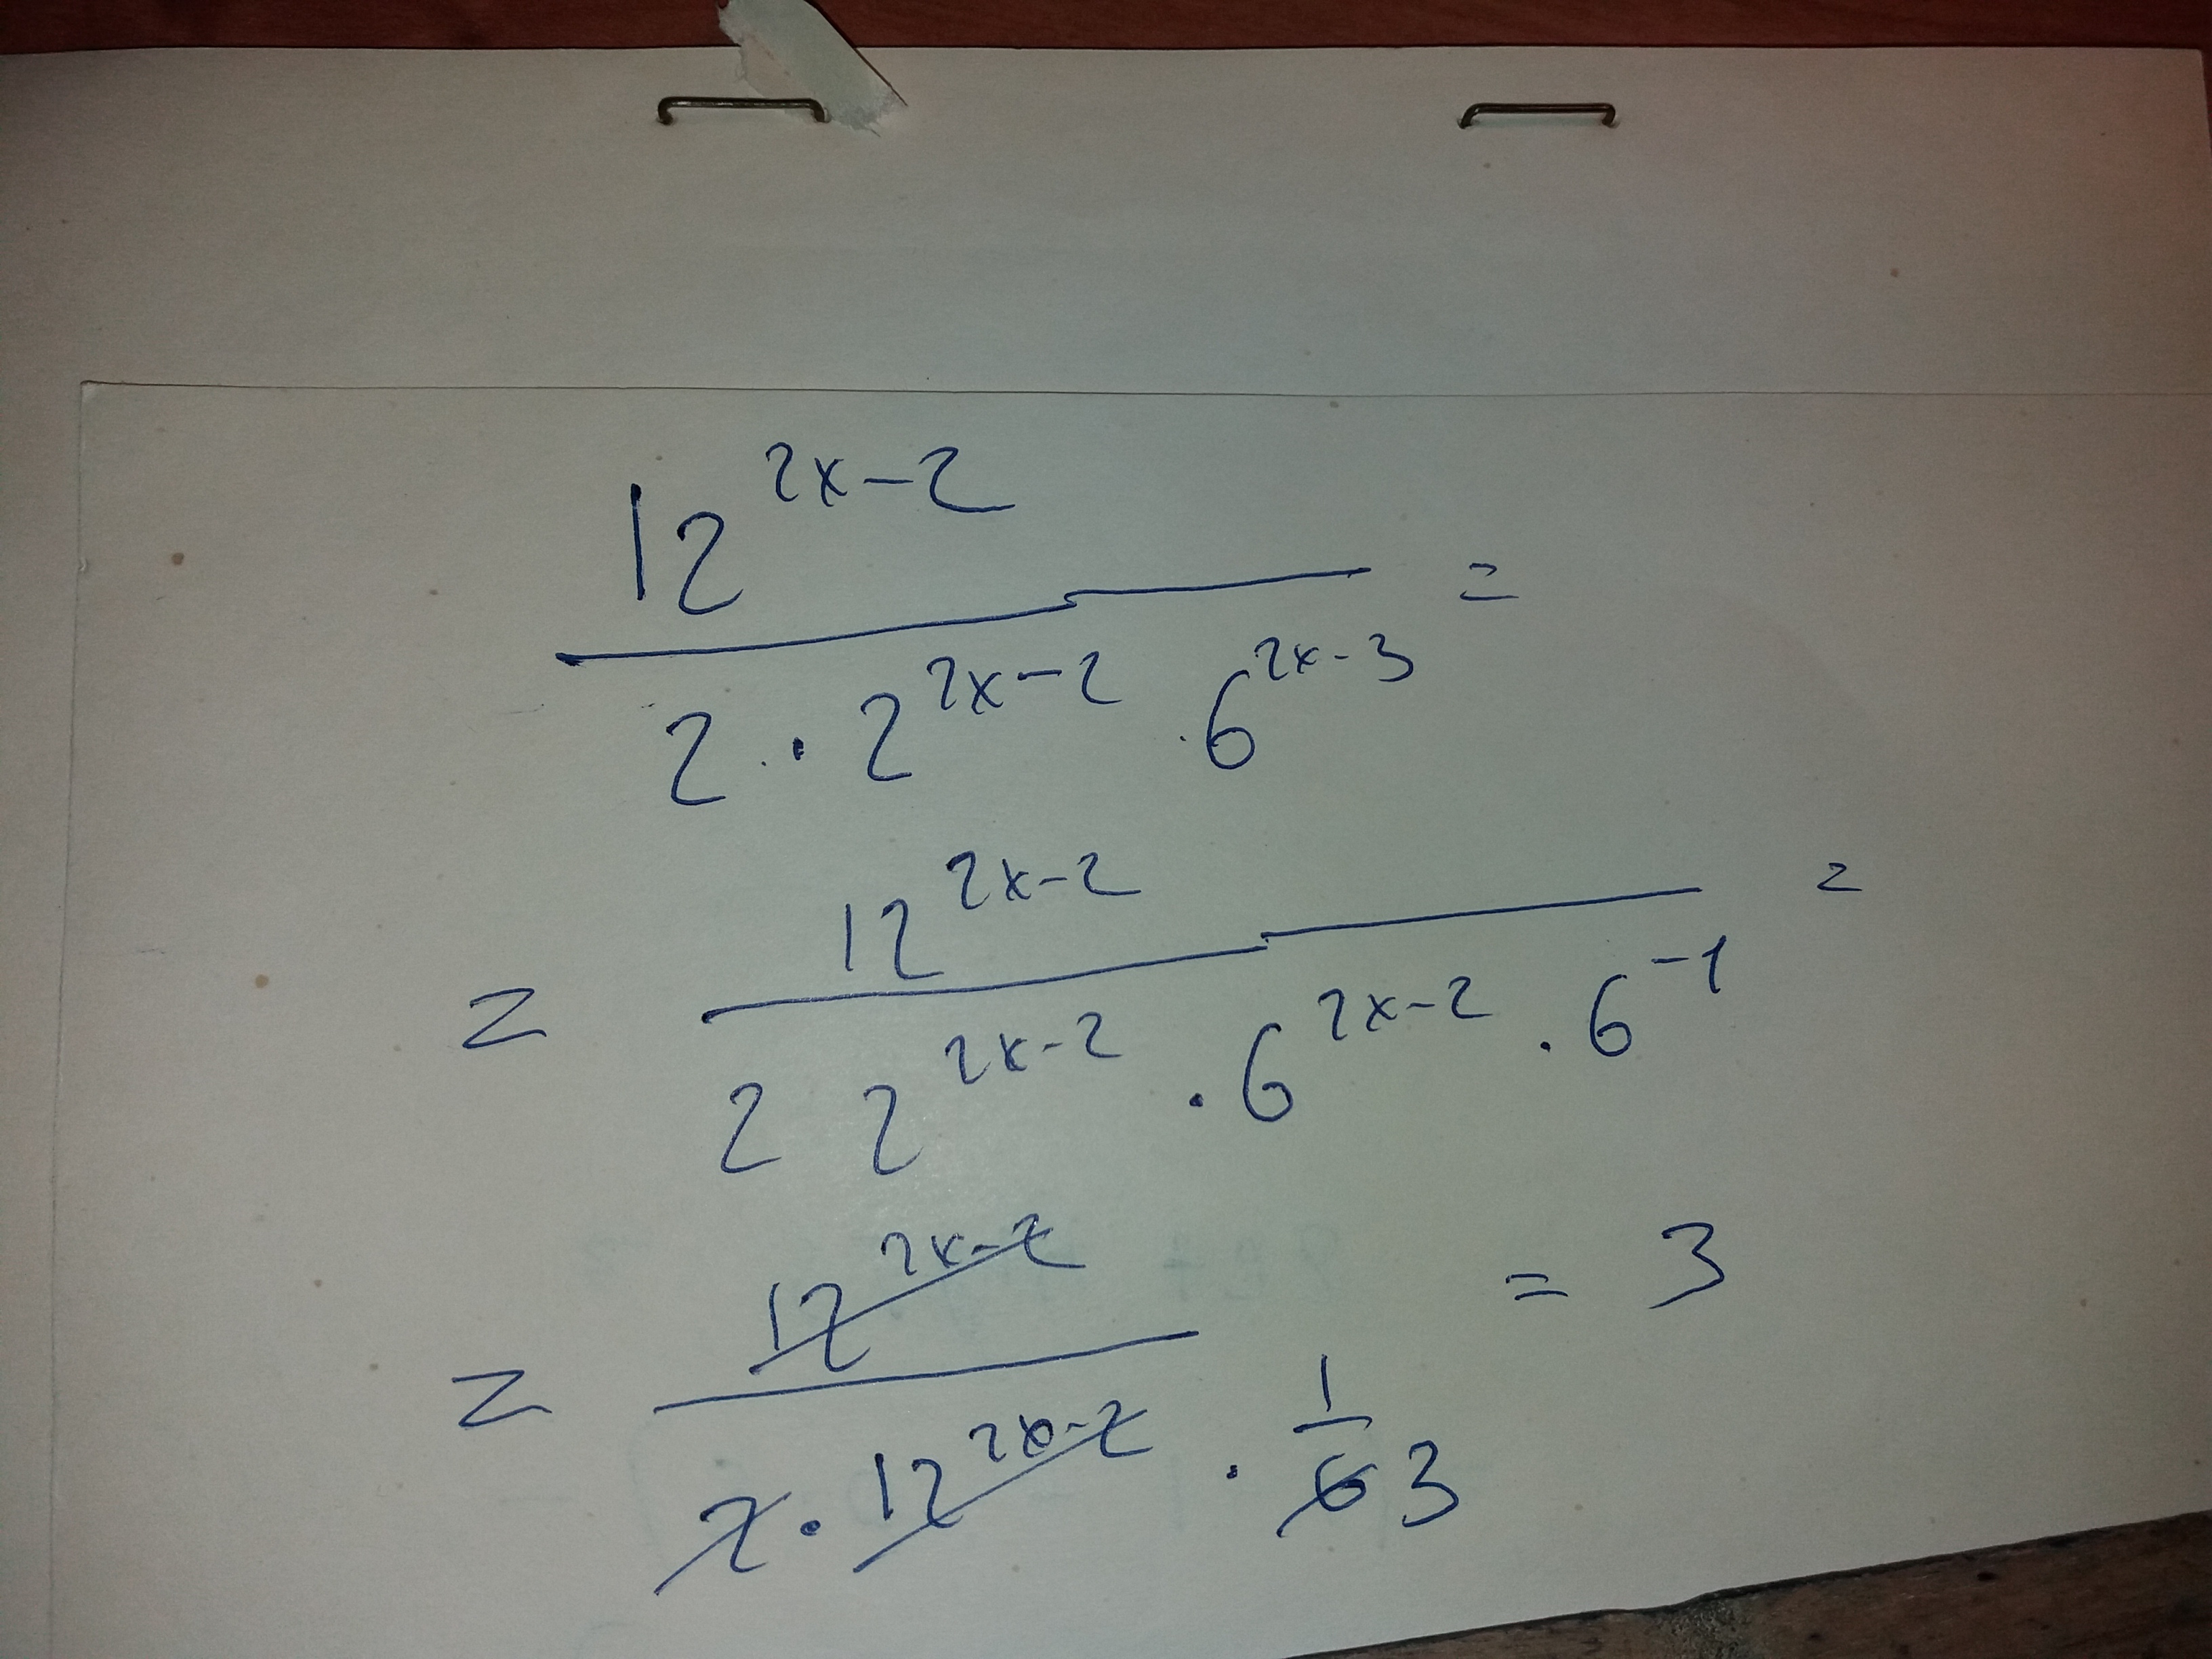 12^{2x-2} / (2 · 2^{2x-2} · 6^{2x-3}) =
= 12^{2x-2} / (2 2^{2x-2} · 6^{2x-2} · 6^{-1}) =
= 12^{2x-2} / (2 · 12^{2x-2} · 1/6 3) = 3